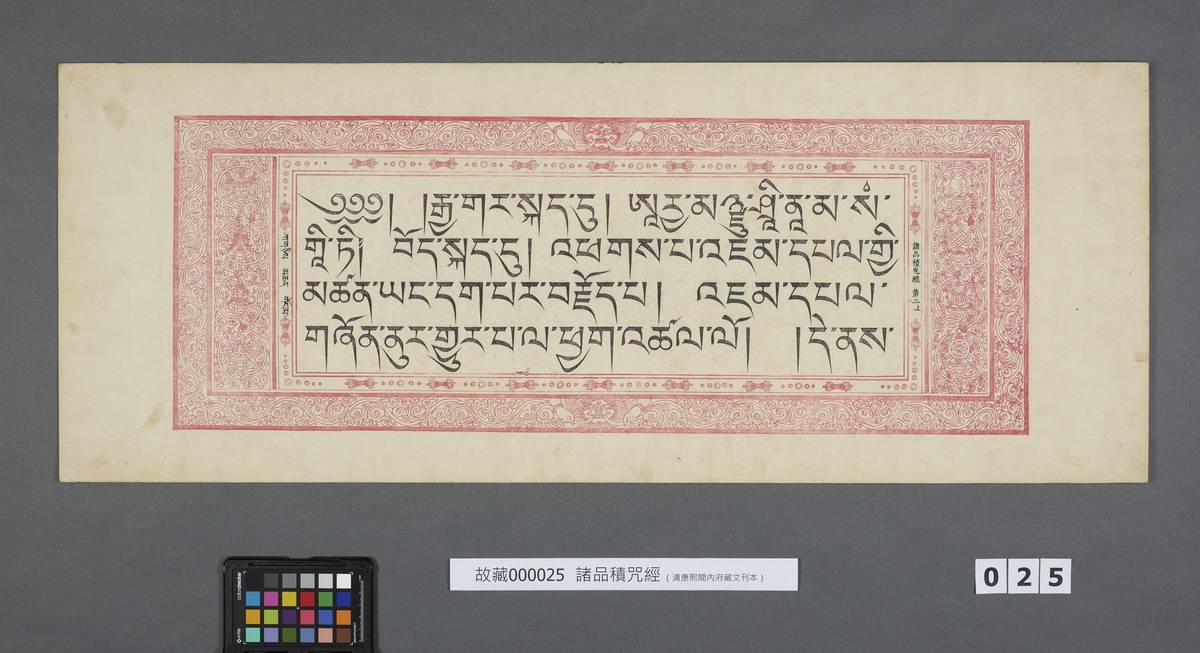 ༄༅༅། །རྒྱ་གར་སྐད་དུ། ཨཱརྱ་མཉྫུ་ཤྲཱི་ནཱ་མ་སཾ་
གཱི་ཏི། བོད་སྐད་དུ། འཕགས་པ་འཇམ་དཔལ་གྱི་
མཚན་ཡང་དག་པར་བརྗོད་པ། འཇམ་དཔལ་
གཞོན་ནུར་གྱུར་པ་ལ་ཕྱག་འཚལ་ལོ། །དེ་ནས་
諸品積咒經 第二上
故藏000025 諸品積咒經 (清康熙間內府藏文刊本)
025